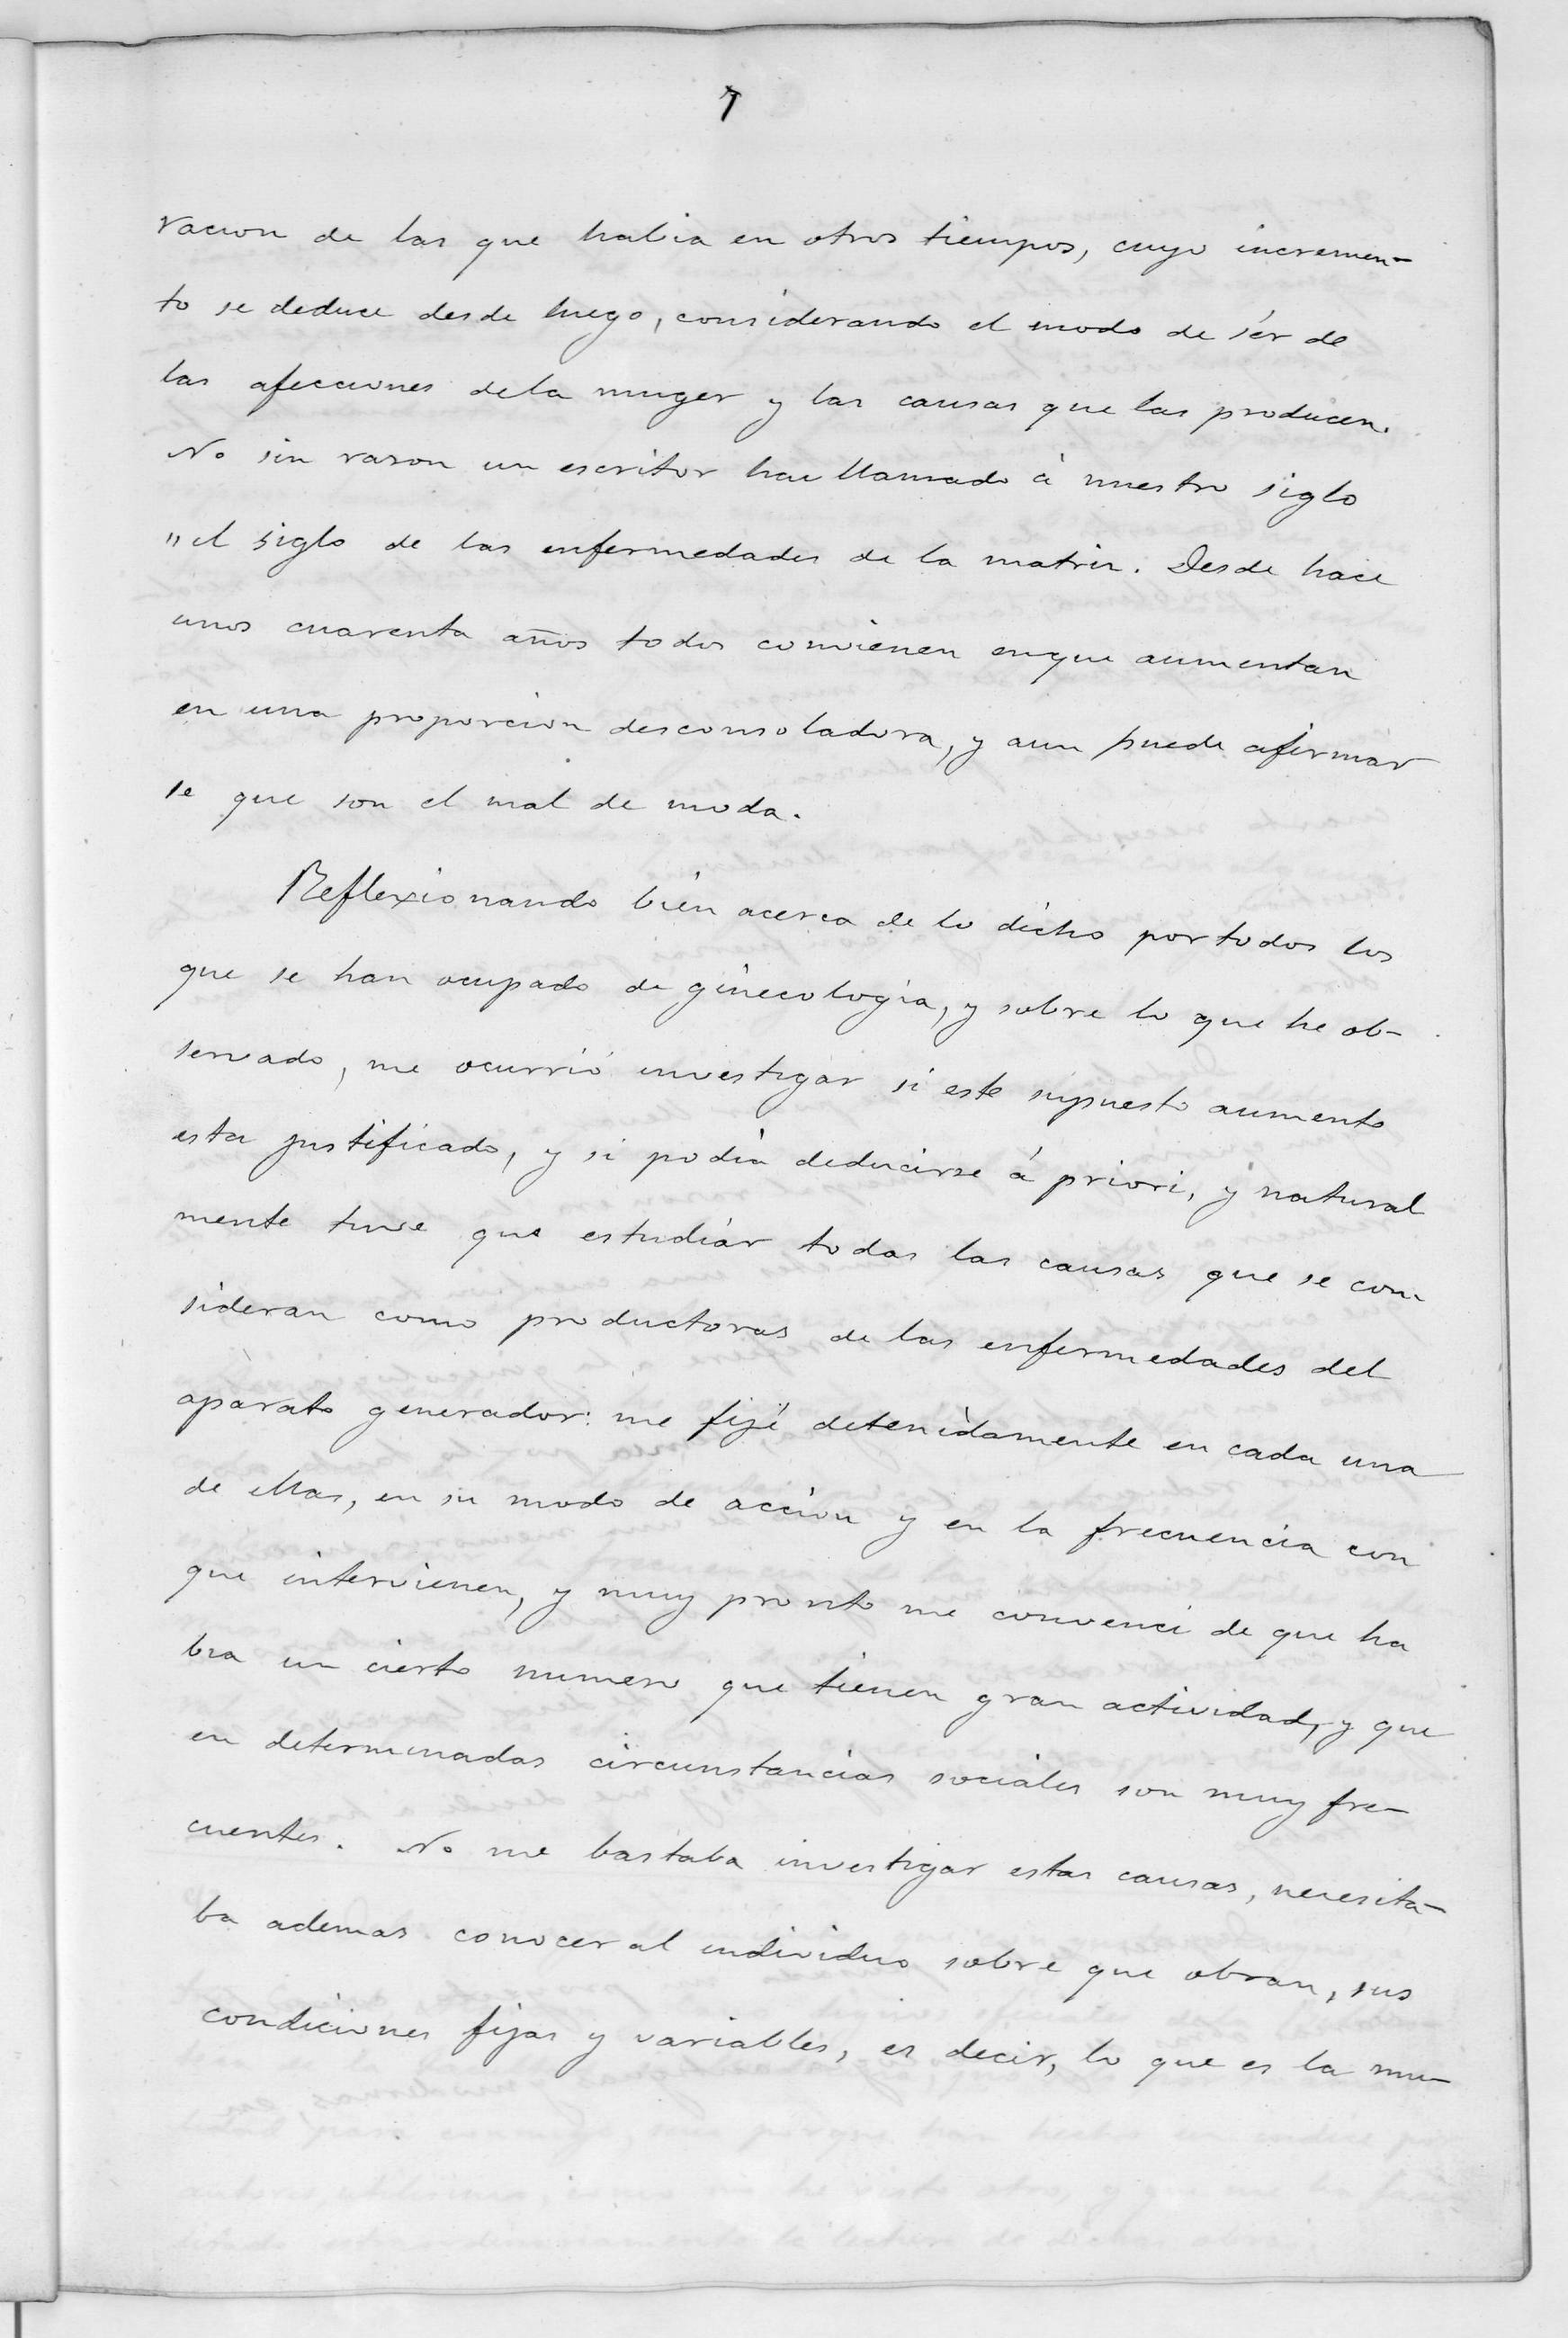 7
racion de las que habia en otros tiempos, cuyo incremen-
to se deduce desde luego, considerando el modo de sér de
las afecciones dela muger y las causas que las producen.
No sin rason un escritor ha llamado á nuestro siglo
"el siglo de las enfermedades de la matriz. Desde hace
unos cuarenta años todos convienen enque aumentan
en una proporcion desconsoladora, y aun puede afirmar
se que son el mal de moda.
Reflexionando bien acerca de lo dicho portodos los
que se han ocupado de ginecologia, y sobre lo que he ob-
servado, me ocurrió investigar si este supuesto aumento
esta justificado, y si podia deducirse á priori, y natural
mente tuve que estudiar todas las causas que se con
sideran como productoras de las enfermedades del
aparato generador: me fijé detenidamente en cada una
de ellas, en su modo de accion y en la frecuencia con
que intervienen, y muy pronto me convenci de que ha
bia un cierto numero que tienen gran actividad, y que
en determinadas circunstancias sociales son muy fre-
cuentes. No me bastaba investigar estas causas, necesita-
ba ademas conocer al individuo sobre que obran, sus
condiciones fijas y variables, es decir, lo que es la mu-